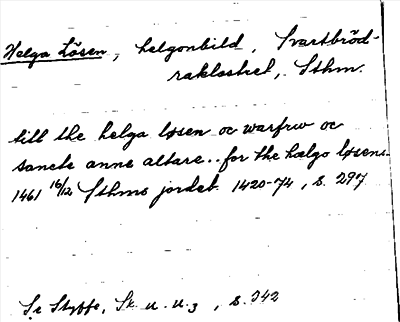 Helga Lösen, helgonbild, Svartbröd-
raklostret, Sthm.
till the helga løsen oc warfrw oc
sancte anne altare.. for the hælgo løsens
1461 16/12 Sthms jordeb. 1420-74, s. 297
Se Styffe, Sk. u. u. 3, s. 342